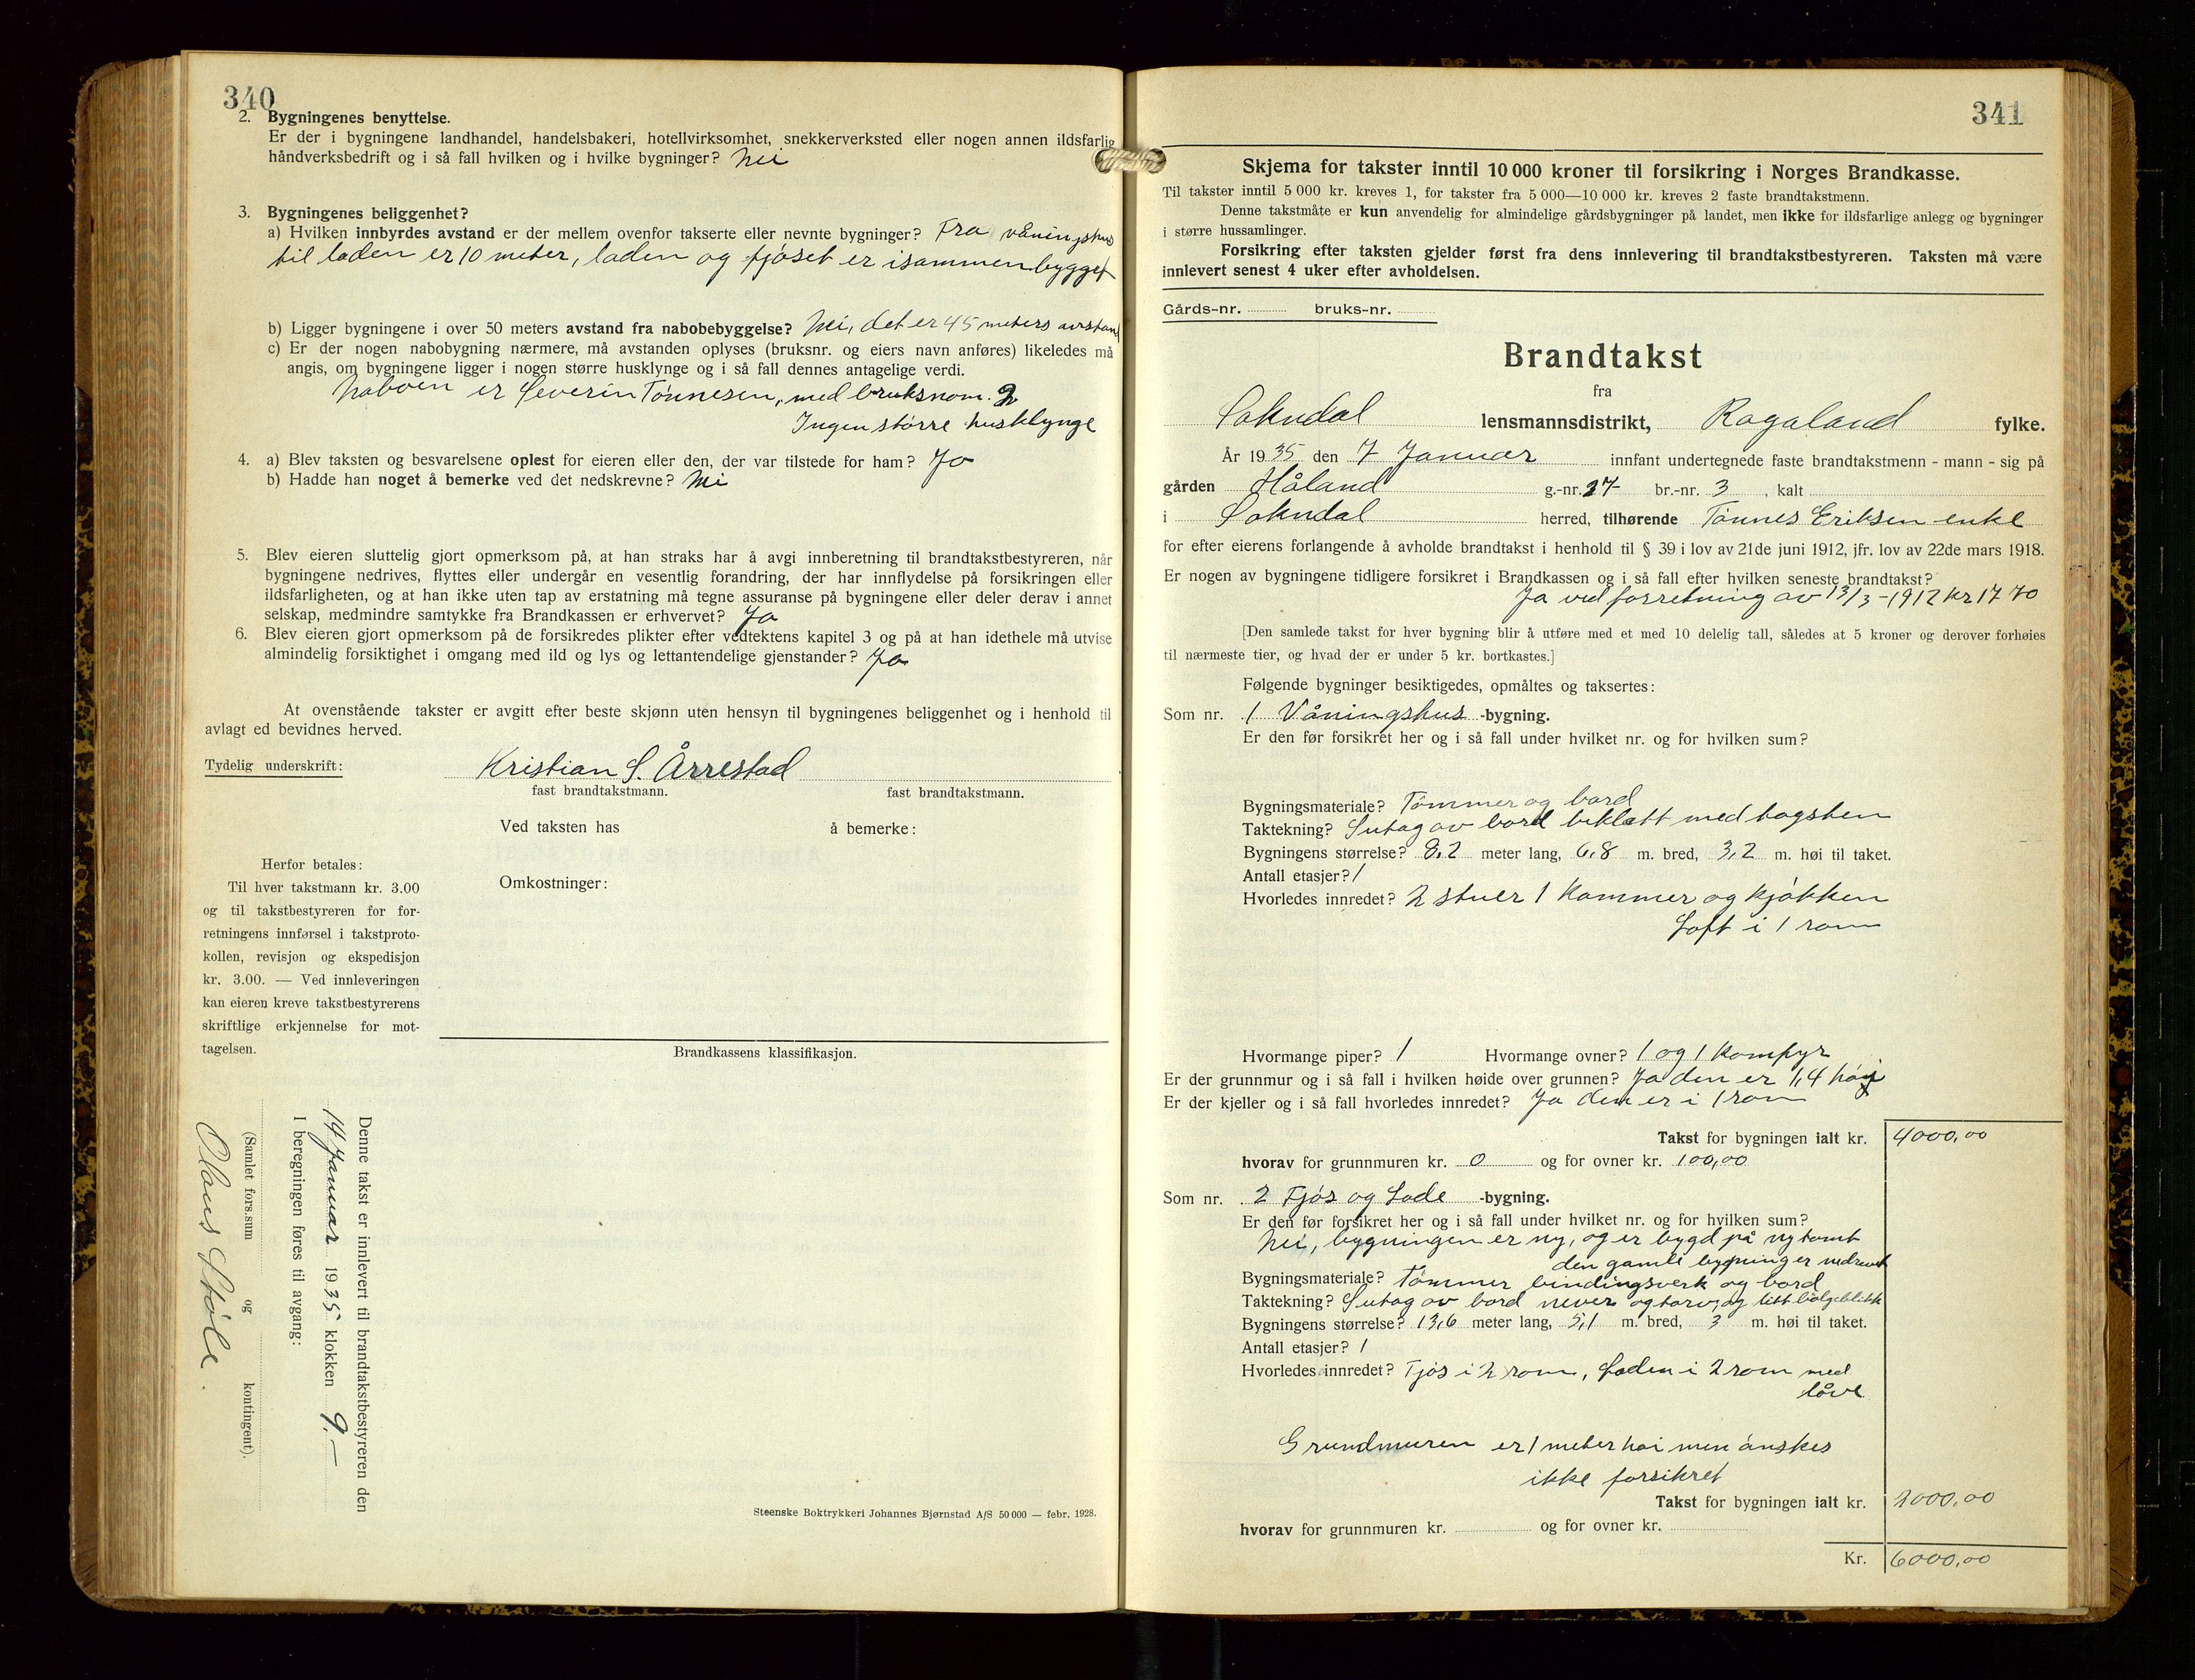 340
2. Bygningenes benyttelse.
Er der i bygningene landhandel, handelsbakeri, hotellvirksomhet, snekkerverksted eller nogen annen ildsfarlig
håndverksbedrift og i så fall hvilken og i hvilke bygninger? Nei
3. Bygningenes beliggenhet?
a) Hvilken innbyrdes avstand er der mellem ovenfor takserte eller nevnte bygninger? Fra våningshus
til laden er 10 meter, laden og fjøset er isammenbygget
b) Ligger bygningene i over 50 meters avstand fra nabobebyggelse? Nei, det er 45 meters avstand
c) Er der nogen nabobygning nærmere, må avstanden oplyses (bruksnr. og eiers navn anføres) likeledes må
angis, om bygningene ligger i nogen større husklynge og i så fall dennes antagelige verdi.
Naboen er Severin Tønnesen, med bruksnom. 2
Ingen større husklynge
4. a) Blev taksten og besvarelsene oplest for eieren eller den, der var tilstede for ham? Ja
b) Hadde han noget å bemerke ved det nedskrevne? Nei
5. Blev eieren sluttelig gjort opmerksom på, at han straks har å avgi innberetning til brandtakstbestyreren, når
bygningene nedrives, flyttes eller undergår en vesentlig forandring, der har innflydelse på forsikringen eller
ildsfarligheten, og at han ikke uten tap av erstatning må tegne assuranse på bygningene eller deler derav i annet
selskap, medmindre samtykke fra Brandkassen er erhvervet? Ja
6. Blev eieren gjort opmerksom på de forsikredes plikter efter vedtektens kapitel 3 og på at han idethele må utvise
almindelig forsiktighet i omgang med ild og lys og lettantendelige gjenstander? Ja
At ovenstående takster er avgitt efter beste skjønn uten hensyn til bygningenes beliggenhet og i henhold til
avlagt ed bevidnes herved.
Tydelig underskrift: Kristian S. Årrestad
fast brandtakstmann. fast brandtakstmann.
Ved taksten has å bemerke:
Omkostninger:
Herfor betales:
Til hver takstmann kr. 3.00
og til takstbestyreren for for-
retningens innførsel i takstproto-
kollen, revisjon og ekspedisjon
kr. 3.00. — Ved innleveringen
kan eieren kreve takstbestyrerens
skriftlige erkjennelse for mot-
tagelsen.
Brandkassens klassifikasjon.
Denne takst er innlevert til brandtakstbestyreren den
14 Januar 1935 klokken 9.—
I beregningen føres til avgang:
(Samlet fors.sum og kontingent).
Olaus Støle.
Steenske Boktrykkeri Johannes Bjørnstad A/S 50 000 — febr. 1928.
341
Skjema for takster inntil 10 000 kroner til forsikring i Norges Brandkasse.
Til takster inntil 5 000 kr. kreves 1, for takster fra 5 000—10 000 kr. kreves 2 faste brandtakstmenn.
Denne takstmåte er kun anvendelig for almindelige gårdsbygninger på landet, men ikke for ildsfarlige anlegg og bygninger
i større hussamlinger.
Forsikring efter taksten gjelder først fra dens innlevering til brandtakstbestyreren. Taksten må være
innlevert senest 4 uker efter avholdelsen.
Gårds-nr. bruks-nr.
Brandtakst
fra
Sokndal lensmannsdistrikt, Rogaland fylke.
År 1935 den 7 Januar innfant undertegnede faste brandtakstmenn - mann - sig på
gården Håland g.-nr. 27 br.-nr. 3, kalt
i Sokndal herred, tilhørende Tønnes Eriksen enke
for efter eierens forlangende å avholde brandtakst i henhold til § 39 i lov av 21de juni 1912, jfr. lov av 22de mars 1918.
Er nogen av bygningene tidligere forsikret i Brandkassen og i så fall efter hvilken seneste brandtakst?
Ja ved forretning av 13/3-1912 kr 1770
[Den samlede takst for hver bygning blir å utføre med et med 10 delelig tall, således at 5 kroner og derover forhøies
til nærmeste tier, og hvad der er under 5 kr. bortkastes.]
Følgende bygninger besiktigedes, opmåltes og taksertes:
Som nr. 1 Våningshus -bygning.
Er den før forsikret her og i så fall under hvilket nr. og for hvilken sum?
Bygningsmateriale? Tømmer og bord
Taktekning? Sutag av bord beklætt med tagsten
Bygningens størrelse? 8,2 meter lang, 6,8 m. bred, 3,2 m. høi til taket.
Antall etasjer? 1
Hvorledes innredet? 2 stuer 1 kammer og kjøkken
Loft i 1 rom
Hvormange piper? 1 Hvormange ovner? 1 og 1 komfyr
Er der grunnmur og i så fall i hvilken høide over grunnen? Ja den er 1,4 høy
Er der kjeller og i så fall hvorledes innredet? Ja den er i 1 rom
Takst for bygningen ialt kr. 4000,00
hvorav for grunnmuren kr. 0 og for ovner kr. 100,00
Som nr. 2 Fjøs og Lade -bygning.
Er den før forsikret her og i så fall under hvilket nr. og for hvilken sum?
Nei, bygningen er ny, og er bygd på ny tomt
den gamle bygning er nedrevet
Bygningsmateriale? Tømmer bindingsverk og bord
Taktekning? Sutag av bord never og torv, og litt bølgeblikk
Bygningens størrelse? 13,6 meter lang, 5,1 m. bred, 3 m. høi til taket.
Antall etasjer? 1
Hvorledes innredet? Fjøs i 2 rom, Laden i 2 rom med
låve
Grundmuren er 1 meter høi men ønskes
ikke forsikret
Takst for bygningen ialt kr. 2000,00
hvorav for grunnmuren kr. og for ovner kr.
Kr. 6000,00